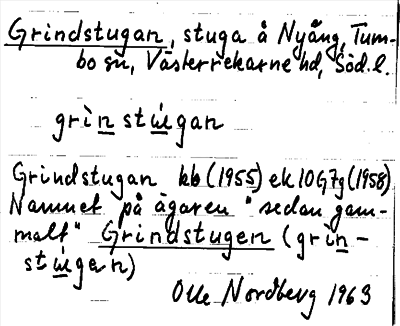 Grindstugan, stuga å Nyäng, Tum-
bo sn, Västerrekarne hd, Söd. l.
grìn stúgan
Grindstugan kb (1955) ek 10G7g (1958)
Namnet på ägaren "sedan gam-
malt" Grindstugen (grìn-
stúgen)
Olle Nordberg 1963